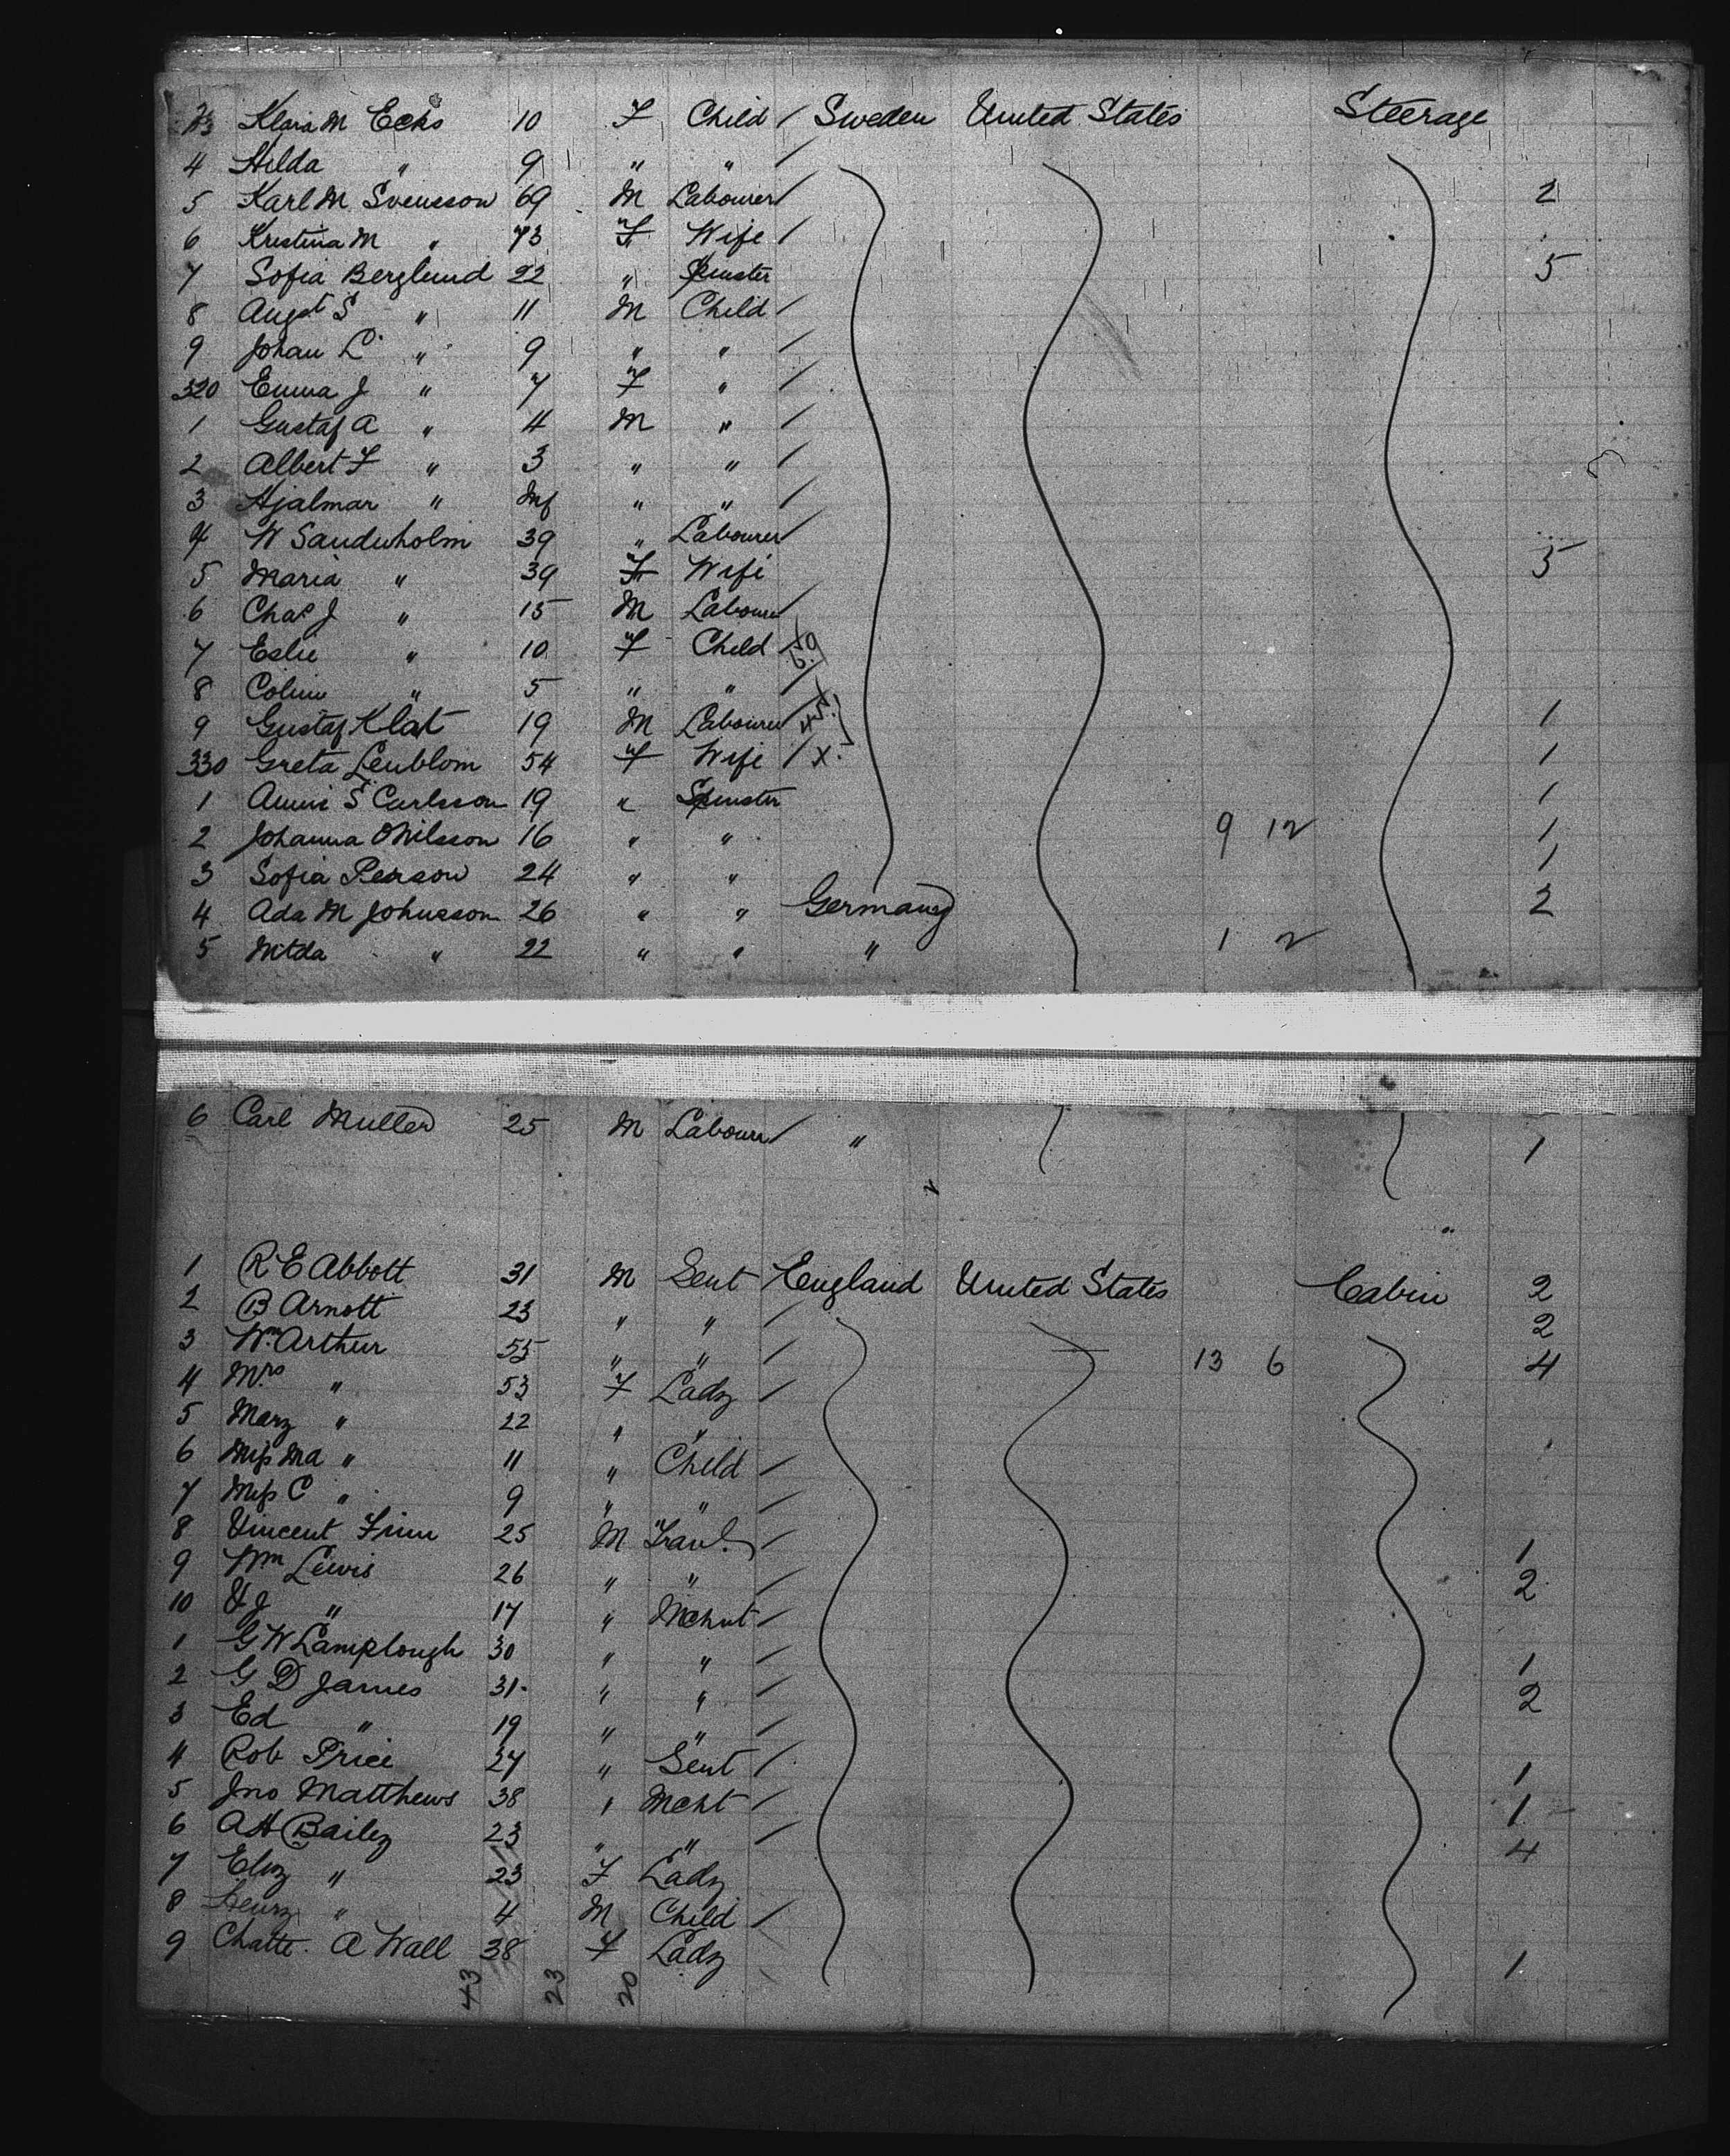 Klara M Ecks 10 F Child / Sweden United States Steerage
4 Hilda " 9 " " /
5 Karl M Svensson 69 M Labourer / 2
6 Kristina M " 73 F Wife /
7 Sofia Berglund 22 " Spinster 5
8 Augst S " 11 M Child /
9 Johan L " 9 " " /
320 Emma J " 7 F " /
1 Gustaf A " 4 M " /
2 Albert F " 3 " " /
3 Hjalmar " Inf " " /
4 W Sandwholm 39 " Labourer / 5
5 Maria " 39 F Wife
6 Chas J " 15 M Labourer /
7 Eslie " 10 F Child /
8 Colin " 5 " " /
9 Gustaf Klat 19 M Labourer / 1
330 Greta Lenblom 54 F Wife / X 1
1 S Carlsson 19 " Spinster 1
2 Johanna O Nilsson 16 " " 9 12 1
3 Sofia Person 24 " " 1
4 Ada M Johnsson 26 " " Germany 2
5 " 22 " " " 1 2
6 Carl Muller 25 M Labourer / " 1
1 R E Abbott 31 M Gent / England United States Cabin 2
2 B Arnott 23 " " / 2
3 Wm Arthur 55 " " / 13 6 4
4 Mrs " 53 F Lady /
5 Mary " 22 " "
6 Miss Ma " 11 " Child /
7 Miss C " 9 " " /
8 Vincent Finn 25 M Travl. / 1
9 Wm Lewis 26 " " / 2
10 J " 17 " Mchnt /
1 G W Lamplough 30 " " / 1
2 G D James 31 " " / 2
3 Ed " 19 " " /
4 Rob Price 27 " Gent / 1
5 Jno Matthews 38 " Mcht / 1
6 A H Bailey 23 " " / 4
7 Eliz " 23 F Lady
8 Henry " 4 M Child /
9 Chatte. A Wall 38 F Lady 1
43 23 20